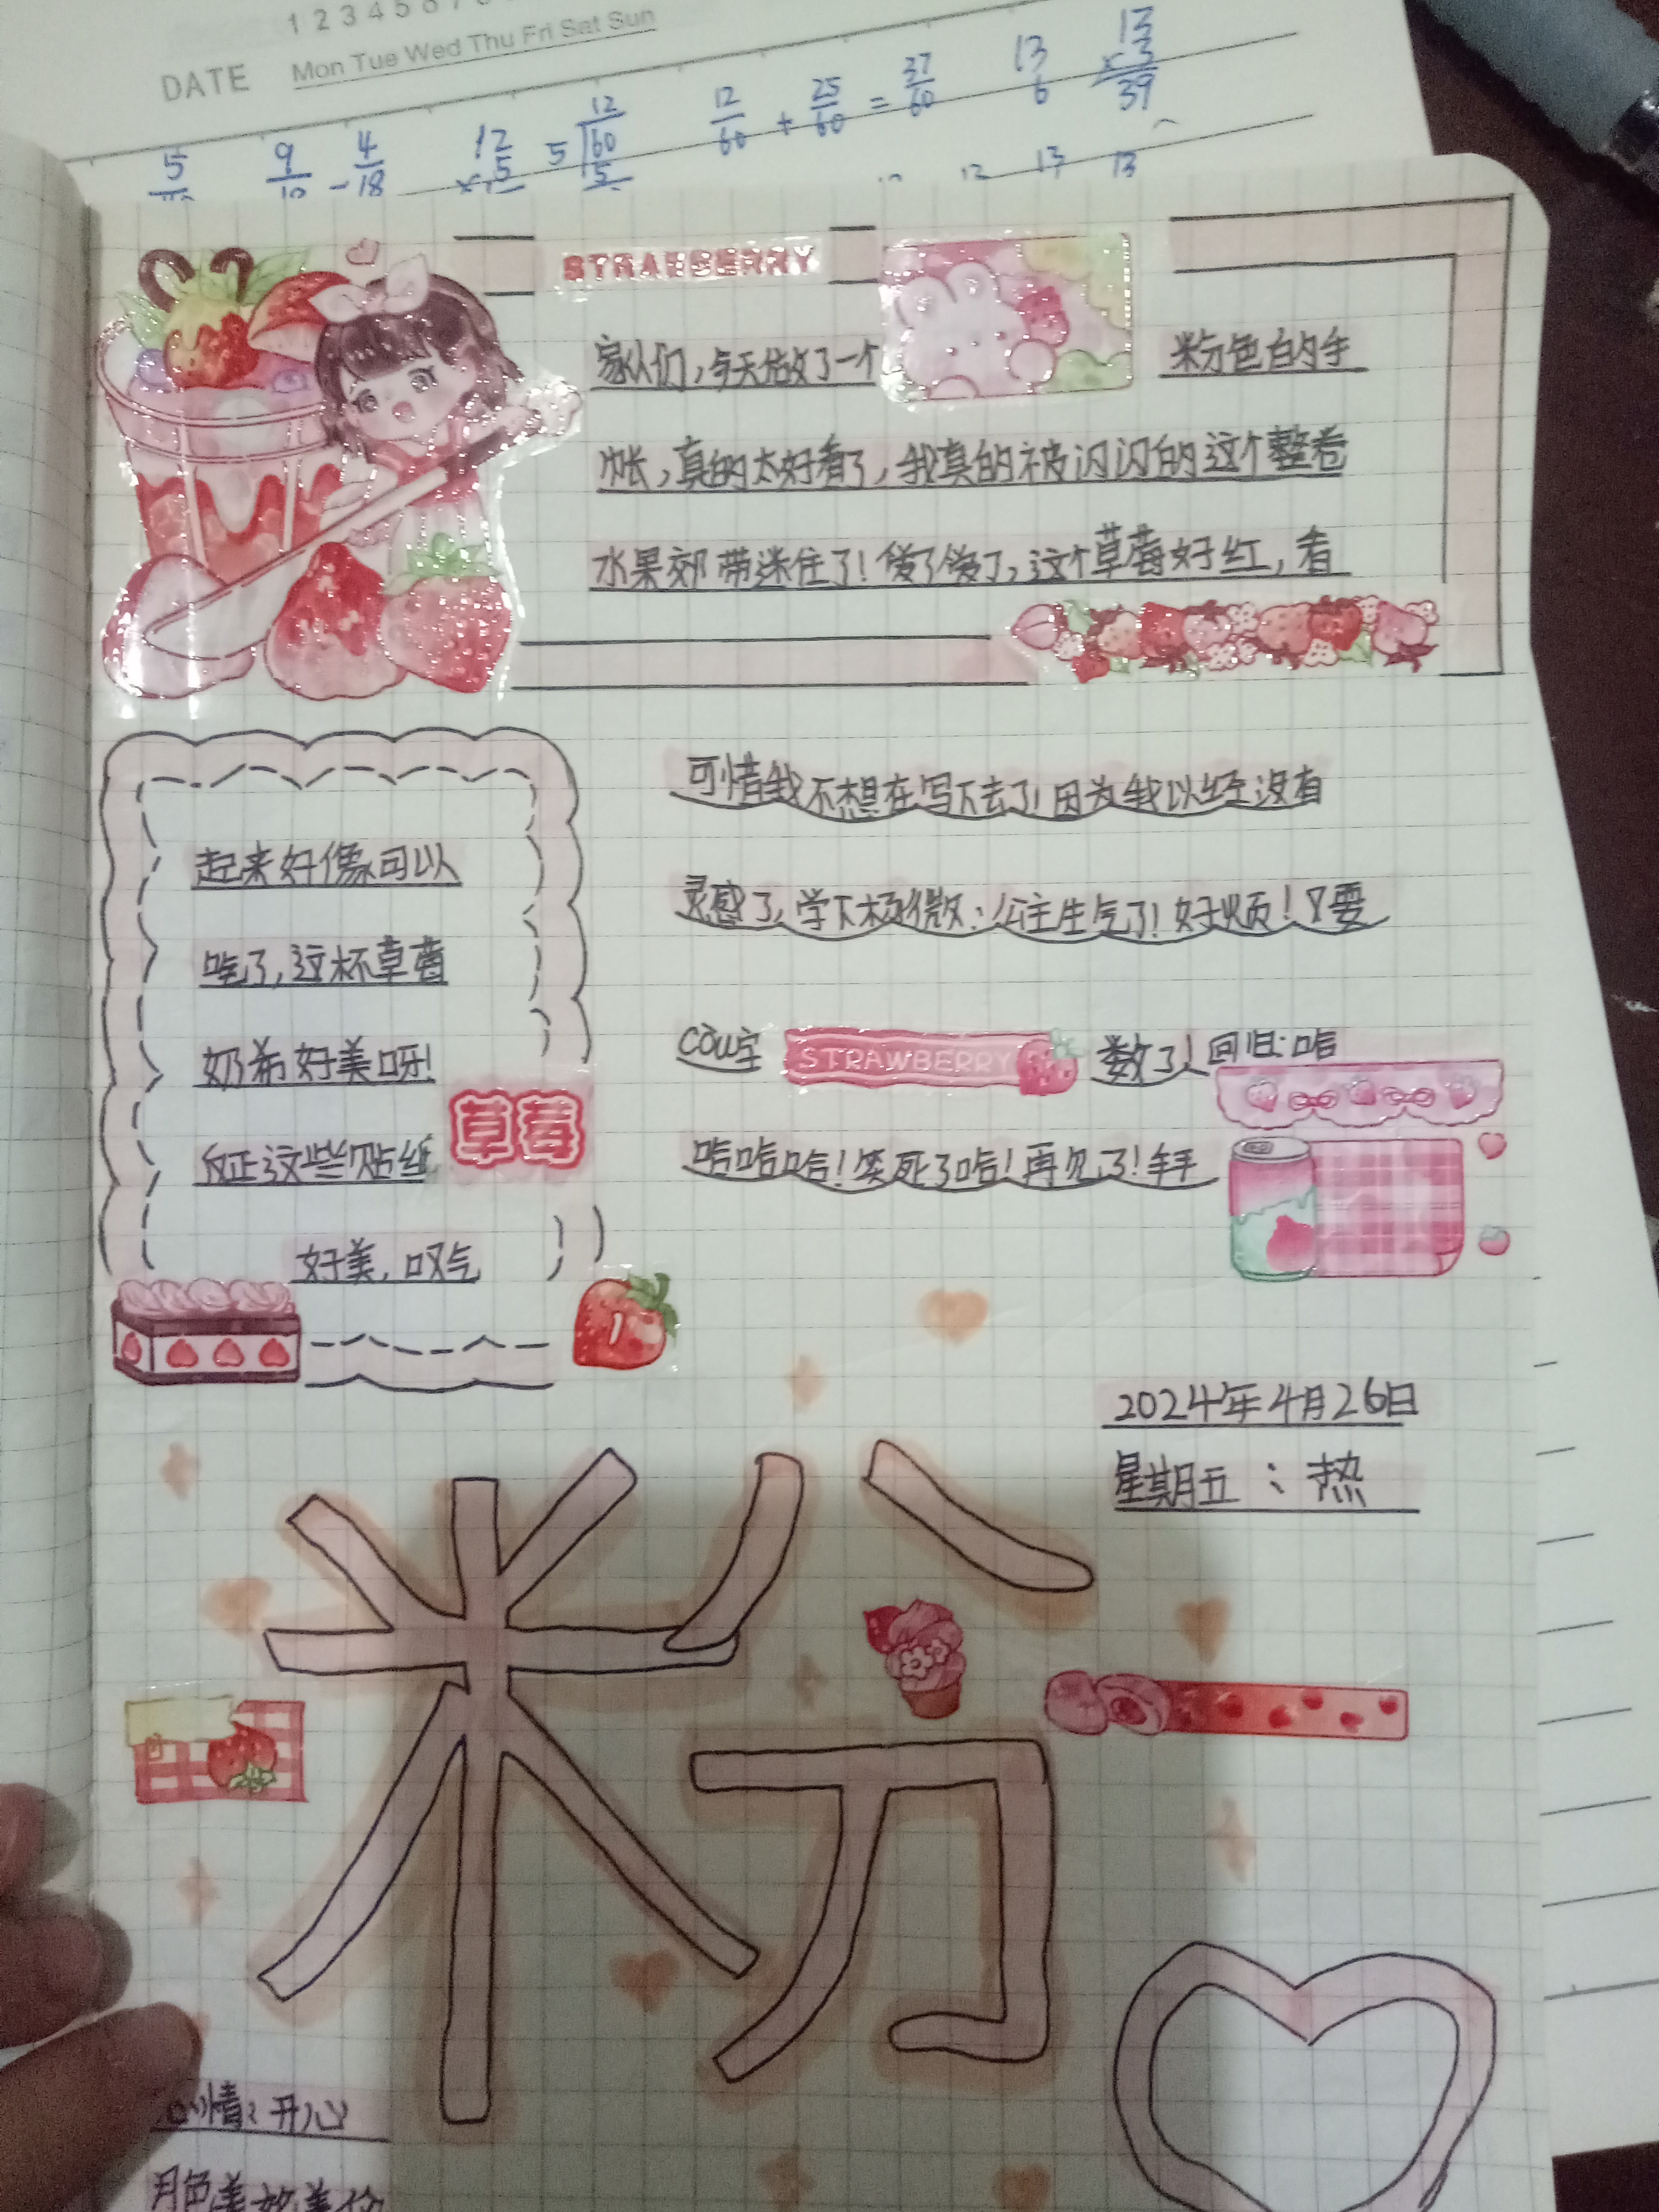 1 2 3 4 5 6 7
DATE Mon Tue Wed Thu Fri Sat Sun
5 9/18 - 4/18 12 × 5 5 12 60 5 12/60 + 25/60 = 37/60 13 6 13 × 3 39
13 13
STRAWBERRY
家人们，今天做了一个粉色的手
帐，真的太好看了，我真的被闪闪的这个整卷
水果郊带迷住了！爱了爱了，这个草莓好红，看
起来好像可以
吃了，这杯草莓
奶希好美呀！
反正这些贴纸
草莓
好美，叹气
可惜我不想在写下去了！因为我以经没有
灵感了，学下杨微：公主生气了！好烦！又要
cow字 STRAWBERRY 数了！回归：哈
哈哈哈！笑死了哈！再见了！
2024年4月26日
星期五：热
粉
心情：开心
月色美